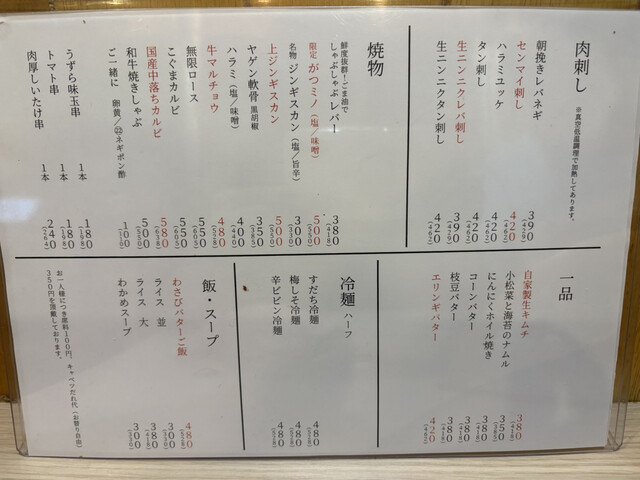 肉刺し
※真空低温調理で加熱してあります。
朝挽きレバネギ 390 (429)
センマイ刺し 420 (462)
ハラミユッケ 420 (462)
タン刺し 420 (462)
生ニンニクレバ刺し 390 (429)
生ニンニクタン刺し 420 (462)
焼物
鮮度抜群!ごま油で
しゃぶしゃぶレバー 380 (418)
限定 がつミノ(塩/味噌) 500 (550)
名物 ジンギスカン(塩/旨辛) 300 (330)
上ジンギスカン 500 (550)
ヤゲン軟骨 黒胡椒 350 (385)
ハラミ(塩/味噌) 400 (440)
牛マルチョウ 480 (528)
無限ロース 550 (605)
こぐまカルビ 550 (605)
国産中落ちカルビ 580 (638)
和牛焼きしゃぶ 500 (550)
ご一緒に 卵黄/㉒ネギポン酢 100 (110)
うずら味玉串 1本 180 (198)
トマト串 1本 180 (198)
肉厚しいたけ串 1本 240 (264)
一品
自家製生キムチ 380 (418)
小松菜と海苔のナムル 350 (385)
にんにくホイル焼き 380 (418)
コーンバター 380 (418)
枝豆バター 380 (418)
エリンギバター 420 (462)
冷麺 ハーフ
すだち冷麺 480 (528)
梅しそ冷麺 480 (528)
辛ビビン冷麺 480 (528)
飯・スープ
わさびバターご飯 480 (528)
ライス 並 300 (330)
ライス 大 380 (418)
わかめスープ 300 (330)
お一人様につき席料100円、キャベツだれ代(お替り自由)
350円を頂戴しております。